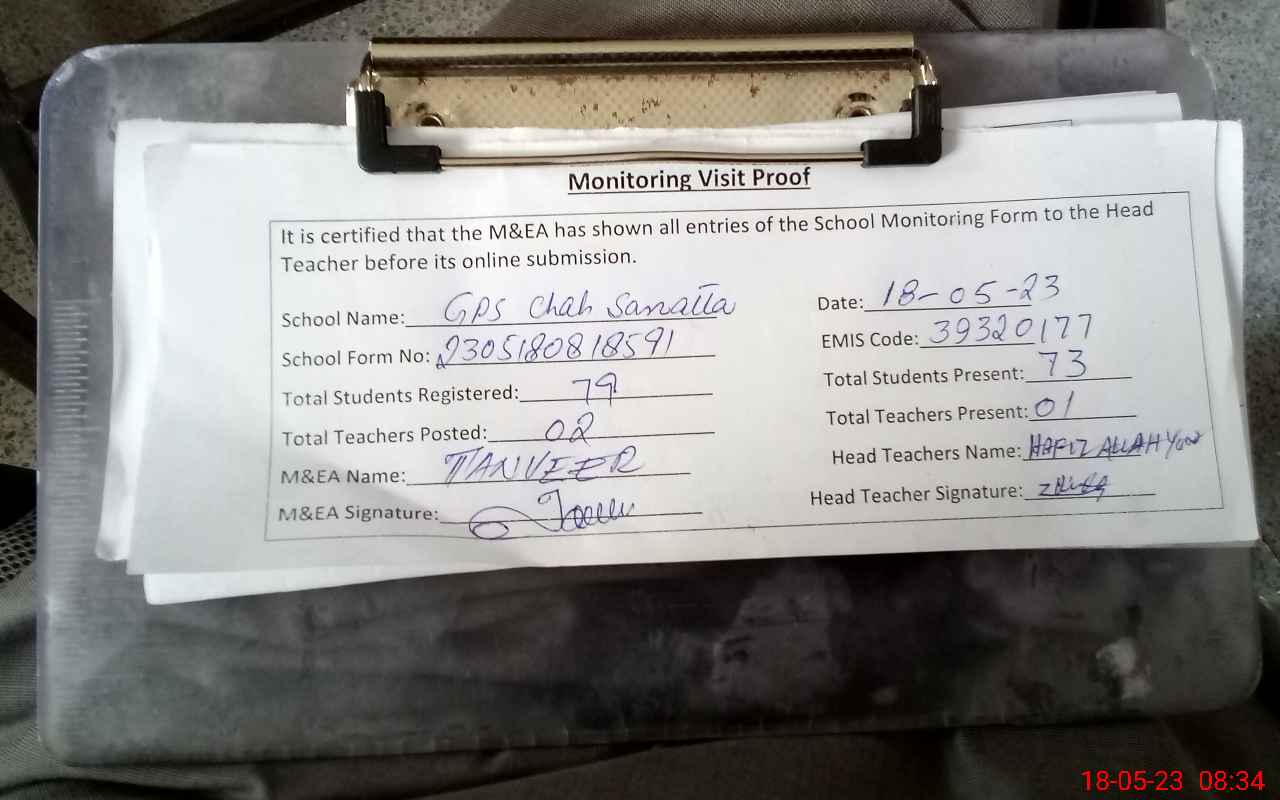 Monitoring Visit Proof
It is certified that the M&EA has shown all entries of the School Monitoring Form to the Head
Teacher before its online submission.
School Name: GPS Chah Sanatta Date: 18-05-23
School Form No: 2305180818591 EMIS Code: 39320177
Total Students Registered: 79 Total Students Present: 73
Total Teachers Posted: 02 Total Teachers Present: 01
M&EA Name: TANVEER Head Teachers Name: HAFIZ ALLAH Yar
M&EA Signature: Head Teacher Signature:
18-05-23 08:34